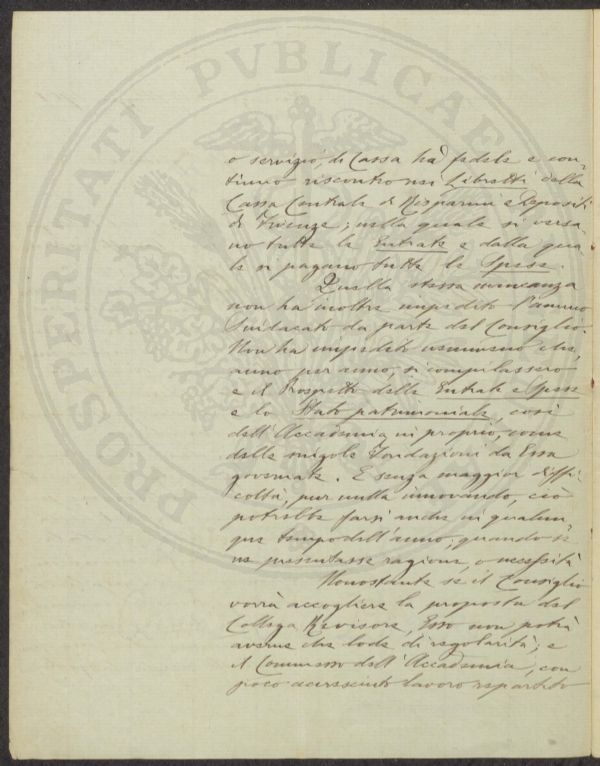 PROSPERITATI PVBLICAE
o servizio, di Cassa ha fedele e con-
tinuo riscontro nei Libretti della
Cassa Centrale di Risparmi e Depositi
di Firenze; nella quale si versa
no tutte le Entrate e dalla qua-
le si pagano tutte le Spese.
Quella stessa mancanza
non ha inoltre impedito l'annuo
Sindacato da parte del Consiglio.
Non ha impedito nemmeno che,
anno per anno, si compilassero
e il Prospetto delle Entrate e Spese
e lo Stato patrimoniale, così
dell'Accademia in proprio, come
delle singole Fondazioni da Essa
governate. E senza maggior diffi-
coltà, pur nulla innovando, ciò
potrebbe farsi anche in qualun-
que tempo dell'anno, quando se
ne presentasse ragione, o necessità
Nonostante se il Consiglio
vorrà accogliere la proposta del
Collega Revisore, Esso non potrà
averne che lode di regolarità; e
il Commesso dell'Accademia, con
poco accresciuto lavoro repartito